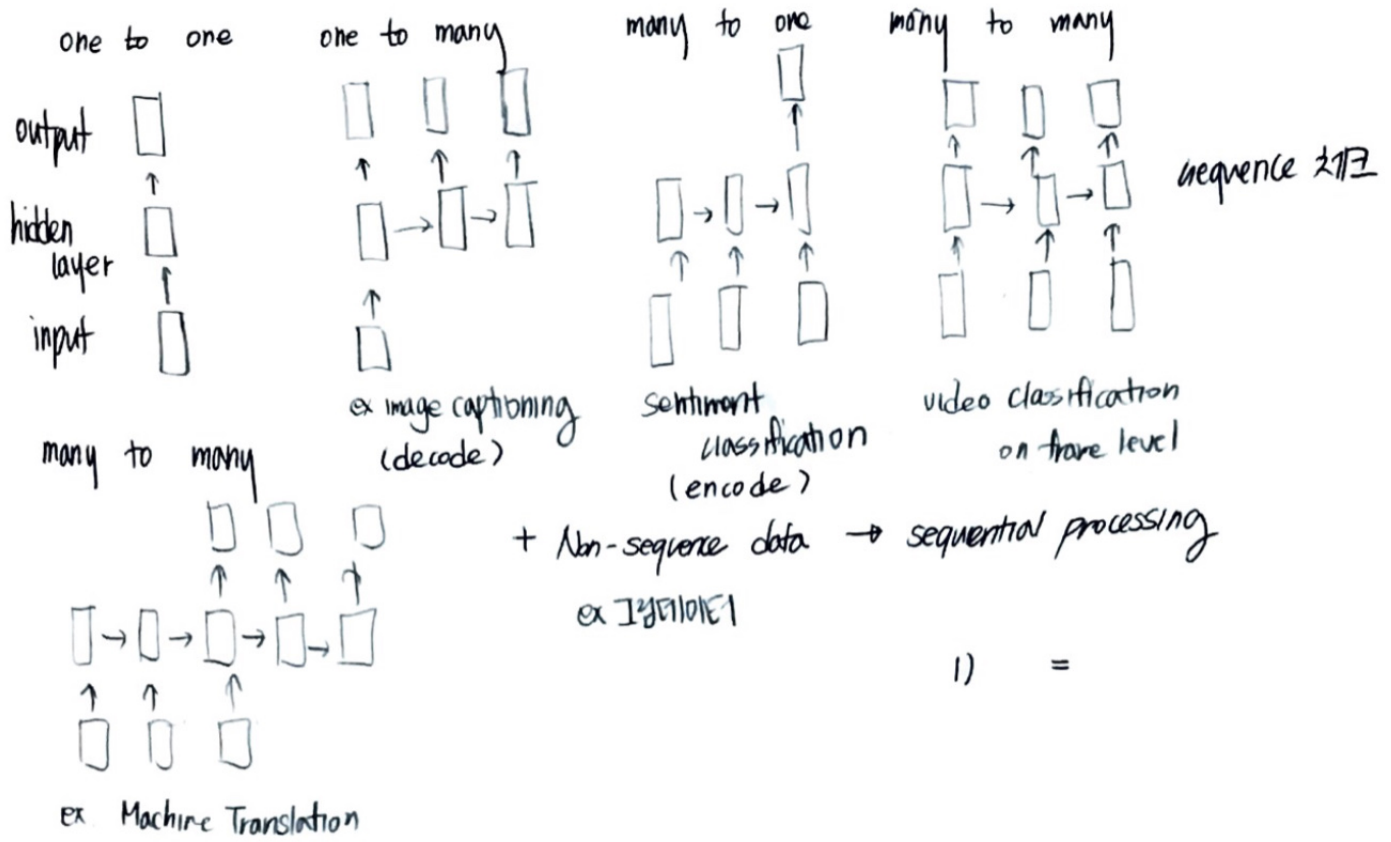 one to one
one to many
many to one
many to many
output
hidden
layer
input
sequence 처리
ex image captioning
(decode)
sentiment
classification
(encode)
video classification
on frame level
many to many
+ Non-sequence data → sequential processing
ex
1) =
ex Machine Translation